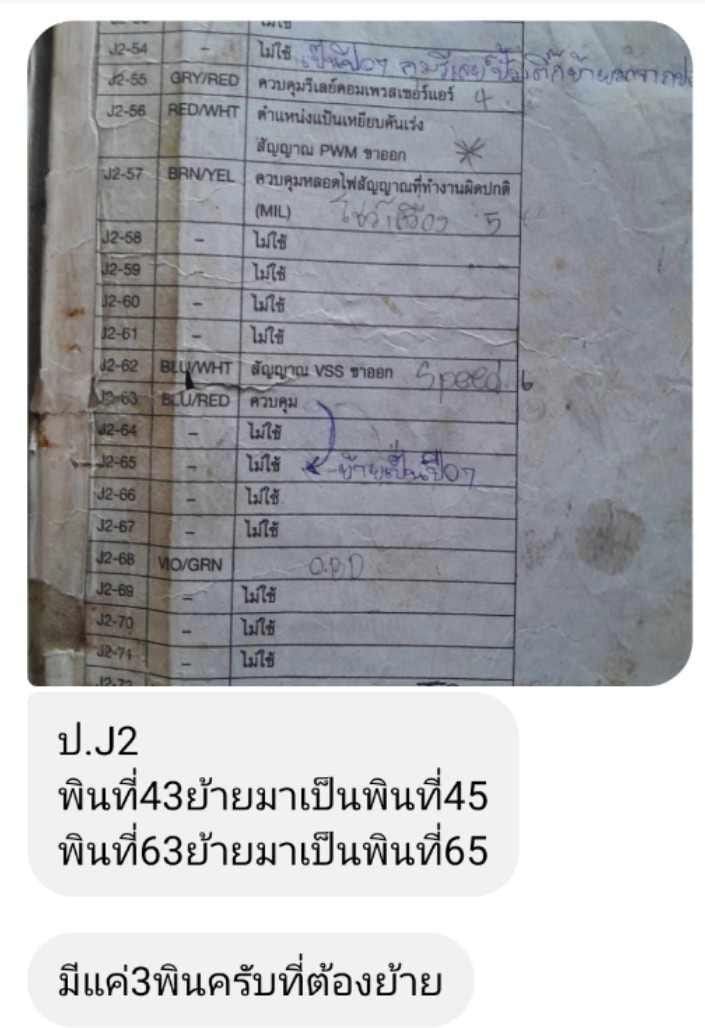 ไม่ใช้
J2-54 - ไม่ใช้ เป็นปี07
J2-55 GRY/RED ควบคุมรีเลย์คอมเพรสเซอร์แอร์ 4
J2-56 RED/WHT ตำแหน่งแป้นเหยียบคันเร่ง
สัญญาณ PWM ขาออก
J2-57 BRN/YEL ควบคุมหลอดไฟสัญญาณที่ทำงานผิดปกติ
(MIL) 5
J2-58 - ไม่ใช้
J2-59 - ไม่ใช้
J2-60 - ไม่ใช้
J2-61 - ไม่ใช้
J2-62 BLU/WHT สัญญาณ VSS ขาออก Speed 6
J2-63 BLU/RED ควบคุม
J2-64 - ไม่ใช้
J2-65 - ไม่ใช้ ย้ายเป็นปี07
J2-66 - ไม่ใช้
J2-67 - ไม่ใช้
J2-68 VIO/GRN O.B.D
J2-69 - ไม่ใช้
J2-70 - ไม่ใช้
J2-71 - ไม่ใช้
J2-72
ป.J2
พินที่43ย้ายมาเป็นพินที่45
พินที่63ย้ายมาเป็นพินที่65
มีแค่3พินครับที่ต้องย้าย